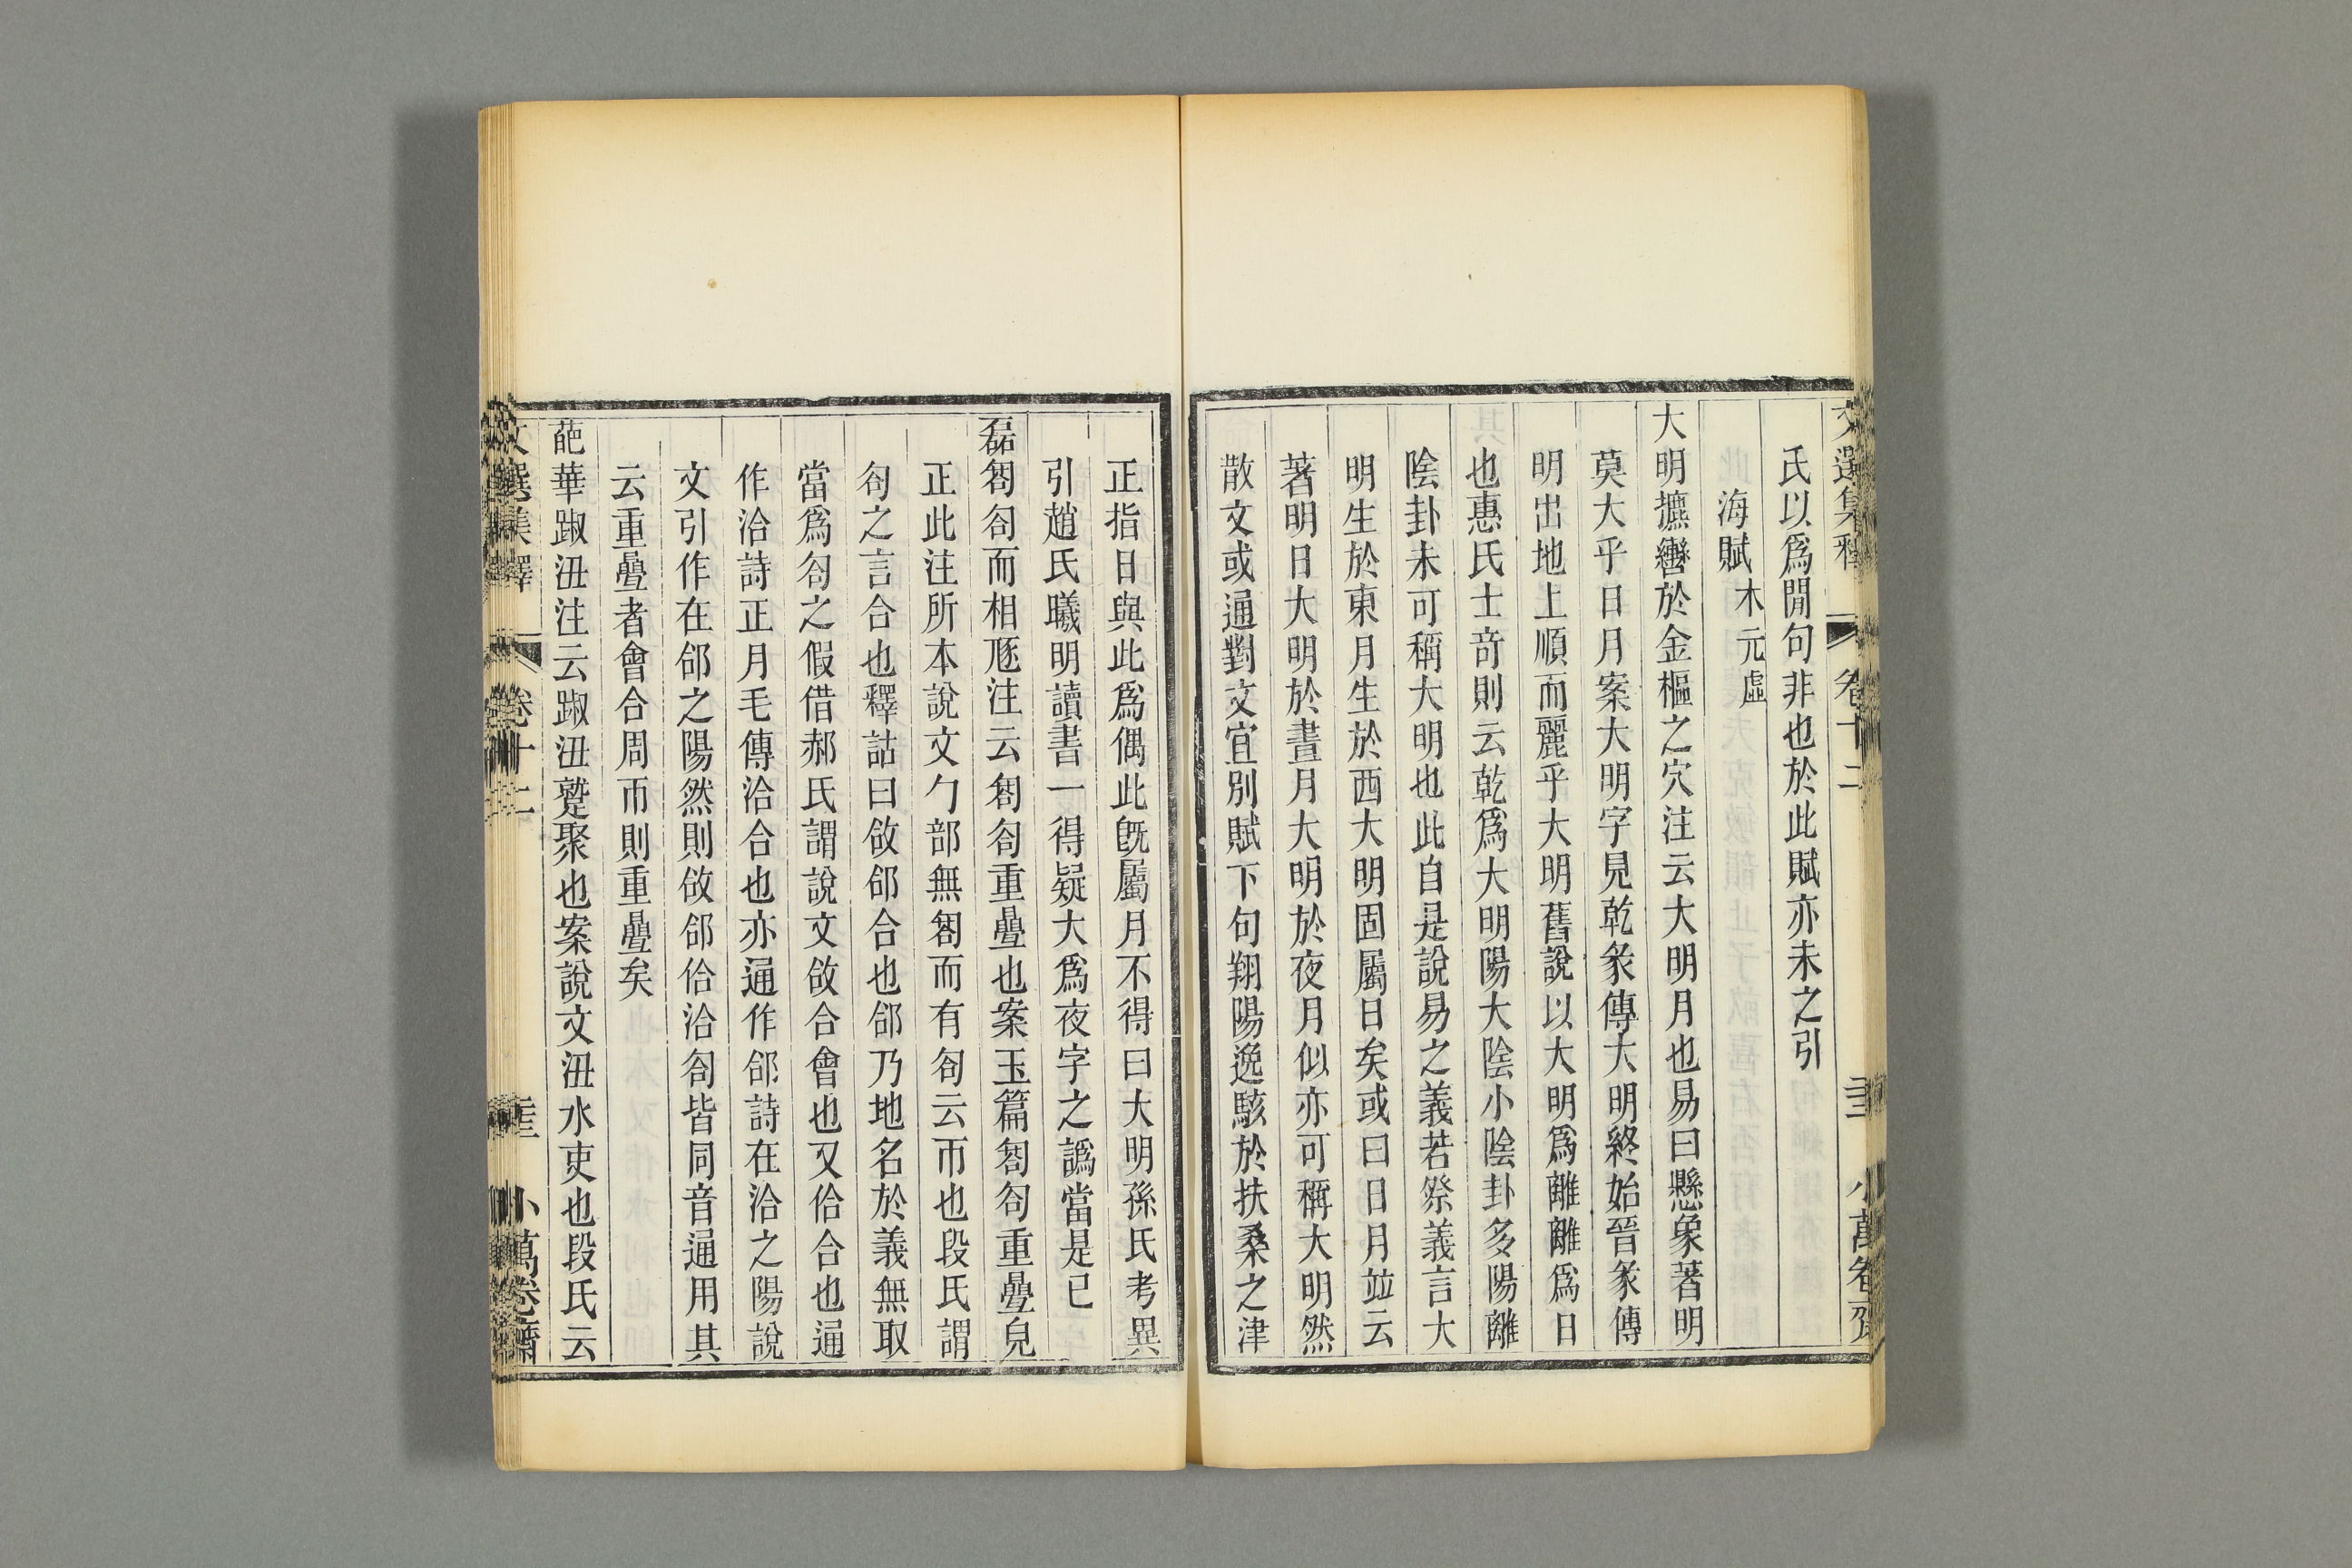 文選集釋 卷十二 小萬卷齋
氏以爲閒句非也於此賦亦未之引
海賦 木元虛
大明㩦轡於金樞之穴注云大明月也易曰懸象著明
莫大乎日月案大明字見乾彖傳大明終始晉彖傳
明出地上順而麗乎大明舊說以大明爲離離爲日
也惠氏士奇則云乾爲大明陽大陰小陰卦多陽離
陰卦未可稱大明也此自是說易之義若祭義言大
明生於東月生於西大明固屬日矣或曰日月竝云
著明日大明於晝月大明於夜月似亦可稱大明然
散文或通對文宜別賦下句翔陽逸駭於扶桑之津
正指日與此爲偶此旣屬月不得曰大明孫氏考異
引趙氏曦明讀書一得疑大爲夜字之譌當是已
磊匒匌而相豗注云匒匌重疊也案玉篇匒匌重疊皃
正此注所本說文勹部無匒而有匌云帀也段氏謂
匌之言合也釋詁曰敆郃合也郃乃地名於義無取
當爲匌之假借郝氏謂說文敆合會也又佮合也通
作洽詩正月毛傳洽合也亦通作郃詩在洽之陽說
文引作在郃之陽然則敆郃佮洽匌皆同音通用其
云重疊者會合周帀則重疊矣
葩華踧沑注云踧沑蹙聚也案說文沑水吏也段氏云
文選集釋 卷十二 小萬卷齋